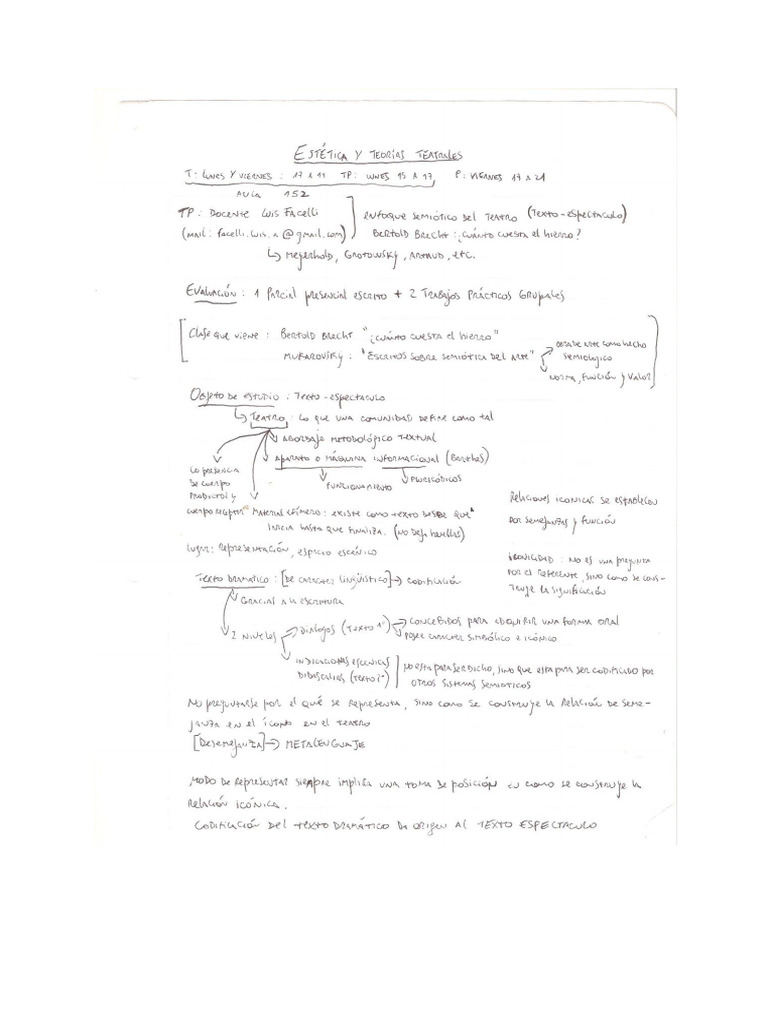 ESTÉTICA Y TEORÍAS TEATRALES
T: LUNES Y VIERNES : 17 A 19 TP: LUNES 15 A 17, P: VIERNES 17 A 21
AULA 152
TP: DOCENTE LUIS FACELLI
(mail: facelli.luis.a@gmail.com)
ENFOQUE SEMIÓTICO DEL TEATRO (TEXTO-ESPECTACULO)
BERTOLD BRECHT: ¿CUÁNTO CUESTA EL HIERRO?
↳ MEYERHOLD, GROTOWSKY, ARTAUD, ETC.
EVALUACIÓN: 1 PARCIAL PRESENCIAL ESCRITO + 2 TRABAJOS PRÁCTICOS GRUPALES
[CLASE QUE VIENE: BERTOLD BRECHT "¿CUÁNTO CUESTA EL HIERRO"
MUKAROVSKY: "ESCRITOS SOBRE SEMIÓTICA DEL ARTE"
ARTE COMO HECHO
SEMIOLÓGICO
NORMA, FUNCIÓN Y VALOR]
OBJETO DE ESTUDIO: TEXTO-ESPECTACULO
↳ TEATRO: LO QUE UNA COMUNIDAD DEFINE COMO TAL
ABORDAJE METODOLÓGICO TEXTUAL
APARATO O MÁQUINA INFORMACIONAL (BARTHES)
FUNCIONAMIENTO
PLURICÓDICOS
LA PRESENCIA
DE CUERPO
PRODUCTOR Y
CUERPO RECEPTOR
MATERIAL EFÍMERO: EXISTE COMO TEXTO DESDE QUE
INICIA HASTA QUE FINALIZA. (NO DEJA HUELLAS)
LUGAR: REPRESENTACIÓN, ESPACIO ESCÉNICO
RELACIONES ICONICAS SE ESTABLECEN
POR SEMEJANZAS Y FUNCIÓN
ICONICIDAD: NO ES UNA PREGUNTA
POR EL REFERENTE, SINO COMO SE CONS-
TRUYE LA SIGNIFICACIÓN
TEXTO DRAMÁTICO: [DE CARACTER LINGÜÍSTICO]→ CODIFICACIÓN
GRACIAS A LA ESCRITURA
2 NIVELES
DIALOGOS (TEXTO 1°)
CONCEBIDOS PARA ADQUIRIR UNA FORMA ORAL
POSEE CARACTER SIMBÓLICO E ICÓNICO
INDICACIONES ESCENICAS
DIDASCALIAS
NO ESTA PARA SER DICHO, SINO QUE ESTA PARA SER CODIFICADO POR
OTROS SISTEMAS SEMIOTICOS
NO PREGUNTARSE POR EL QUÉ SE REPRESENTA, SINO COMO SE CONSTRUYE LA RELACIÓN DE SEME-
JANZA EN EL ÍCONO EN EL TEATRO
[DESEMEJANZA]→ METALENGUAJE
MODO DE REPRESENTAR SIEMPRE IMPLICA UNA TOMA DE POSICIÓN EN COMO SE CONSTRUYE LA
RELACIÓN ICÓNICA.
CODIFICACIÓN DEL TEXTO DRAMÁTICO DA ORIGEN AL TEXTO ESPECTACULO